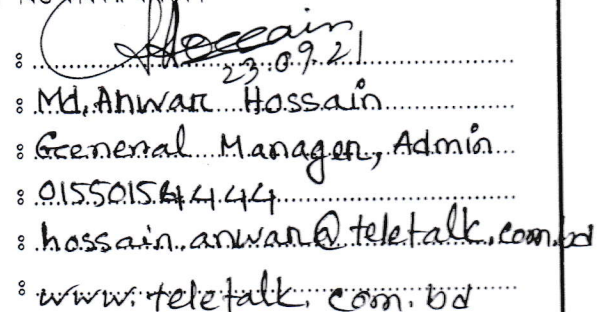 Hossain
: 23.09.21
: Md. Anwar Hossain
: General Manager, Admin
: 01550154444
: hossain.anwar@teletalk.com.bd
: www.teletalk.com.bd